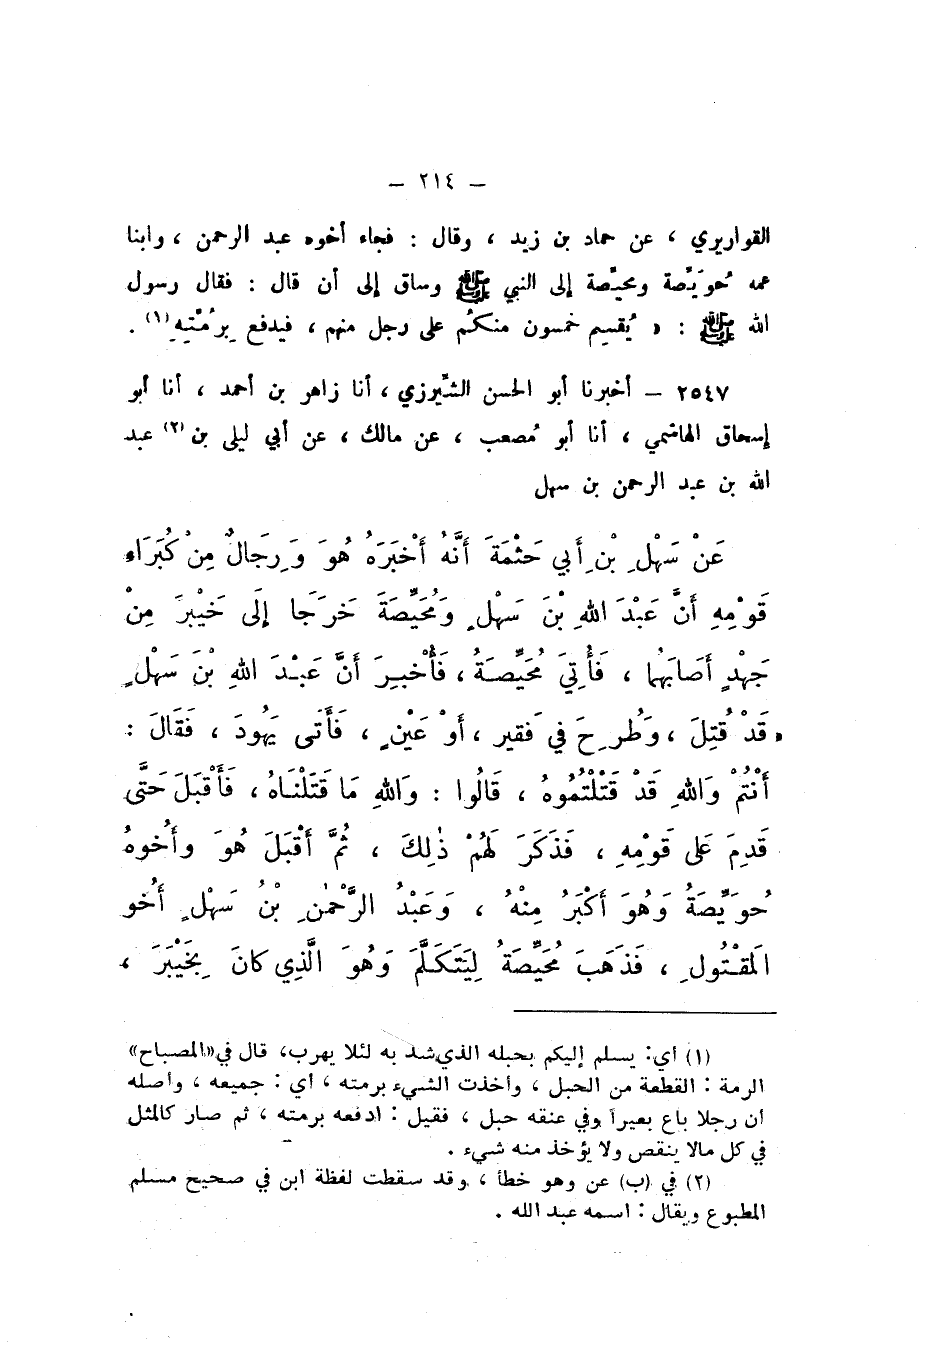 — ٢١٤ —
القواريري ، عن حماد بن زيد ، وقال : فجاء أخوه عبد الرحمن ، وابنا
عمه حُوَيِّصة ومحيِّصة إلى النبي ﷺ وساق إلى أن قال : فقال رسول
الله ﷺ : « يُقسِم خمسون منكُم على رجل منهم ، فيدفع بِرُمَّتِهِ(١) .
٢٥٤٧ — أخبرنا أبو الحسن الشِّيرزي ، أنا زاهر بن أحمد ، أنا أبو
إسحاق الهاشمي ، أنا أبو مُصعب ، عن مالك ، عن أبي ليلى بن(٢) عبد
الله بن عبد الرحمن بن سهل
عَنْ سَهْلِ بْنِ أَبي حَثْمَةَ أَنَّهُ أَخْبَرَهُ هُوَ وَرِجَالٌ مِنْ كُبَرَاءِ
قَوْمِهِ أَنَّ عَبْدَ اللهِ بْنَ سَهْلٍ وَمُحَيِّصَةَ خَرَجَا إِلَى خَيْبَرَ مِنْ
جَهْدٍ أَصَابَهُما ، فَأُتِيَ مُحَيِّصَةُ ، فَأُخْبِرَ أَنَّ عَبْدَ اللهِ بْنَ سَهْلٍ
قَدْ قُتِلَ ، وَطُرِحَ في فَقيرٍ ، أَوْ عَيْنٍ ، فَأَتَى يَهُودَ ، فَقَالَ :
أَنْتُمْ وَاللهِ قَدْ قَتَلْتُمُوهُ ، قَالُوا : وَاللهِ مَا قَتَلْنَاهُ ، فَأَقْبَلَ حَتَّى
قَدِمَ عَلى قَوْمِهِ ، فَذَكَرَ لَهُمْ ذٰلِكَ ، ثُمَّ أَقْبَلَ هُوَ وأَخُوهُ
حُوَيِّصَةُ وَهُوَ أَكْبَرُ مِنْهُ ، وَعَبْدُ الرَّحْمٰنِ بْنُ سَهْلٍ أَخُو
المَقْتُولِ ، فَذَهَبَ مُحَيِّصَةُ لِيَتَكَلَّمَ وَهُوَ الَّذِي كانَ بِخَيْبَرَ ،
(١) أي: يسلم إليكم بحبله الذي شد به لئلا يهرب، قال في«المصباح»
الرمة : القطعة من الحبل ، وأخذت الشيء برمته ، أي : جميعه ، وأصله
أن رجلا باع بعيراً وفي عنقه حبل ، فقيل : ادفعه برمته ، ثم صار كالمثل
في كل مالا ينقص ولا يؤخذ منه شيء .
(٢) في (ب) عن وهو خطأ ، وقد سقطت لفظة ابن في صحيح مسلم
المطبوع ويقال : اسمه عبد الله .